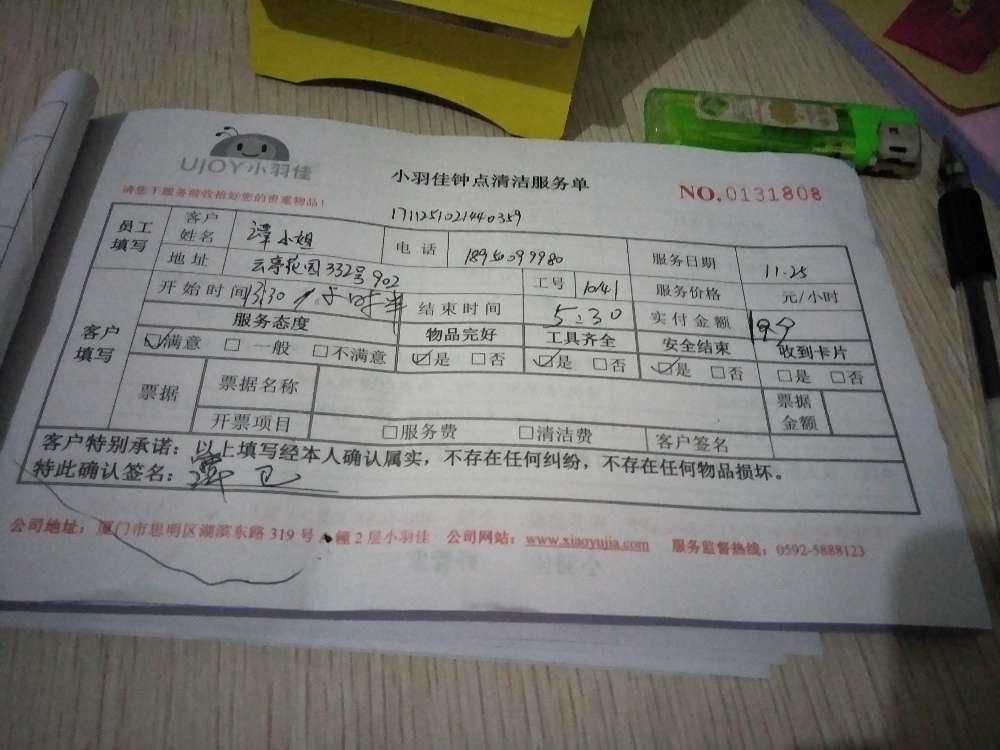 UJOY小羽佳
小羽佳钟点清洁服务单
NO.0131808
请您于服务前收拾好您的贵重物品!
1711251021440359
员工填写 客户姓名 谭小姐 电话 服务日期 11.25
地址 云亭花园332号902 工号 1041 服务价格 元/小时
客户填写 开始时间 13:30 结束时间 5:30 实付金额 199
服务态度 物品完好 工具齐全 安全结束 收到卡片
☑满意 □一般 □不满意 ☑是 □否 ☑是 □否 ☑是 □否 □是 □否
票据 票据名称 票据金额
开票项目 □服务费 □清洁费 客户签名
客户特别承诺:以上填写经本人确认属实,不存在任何纠纷,不存在任何物品损坏。
特此确认签名:
公司地址:厦门市思明区湖滨东路319号A幢2层小羽佳 公司网站:www.xiaoyujia.com 服务监督热线:0592-5888123